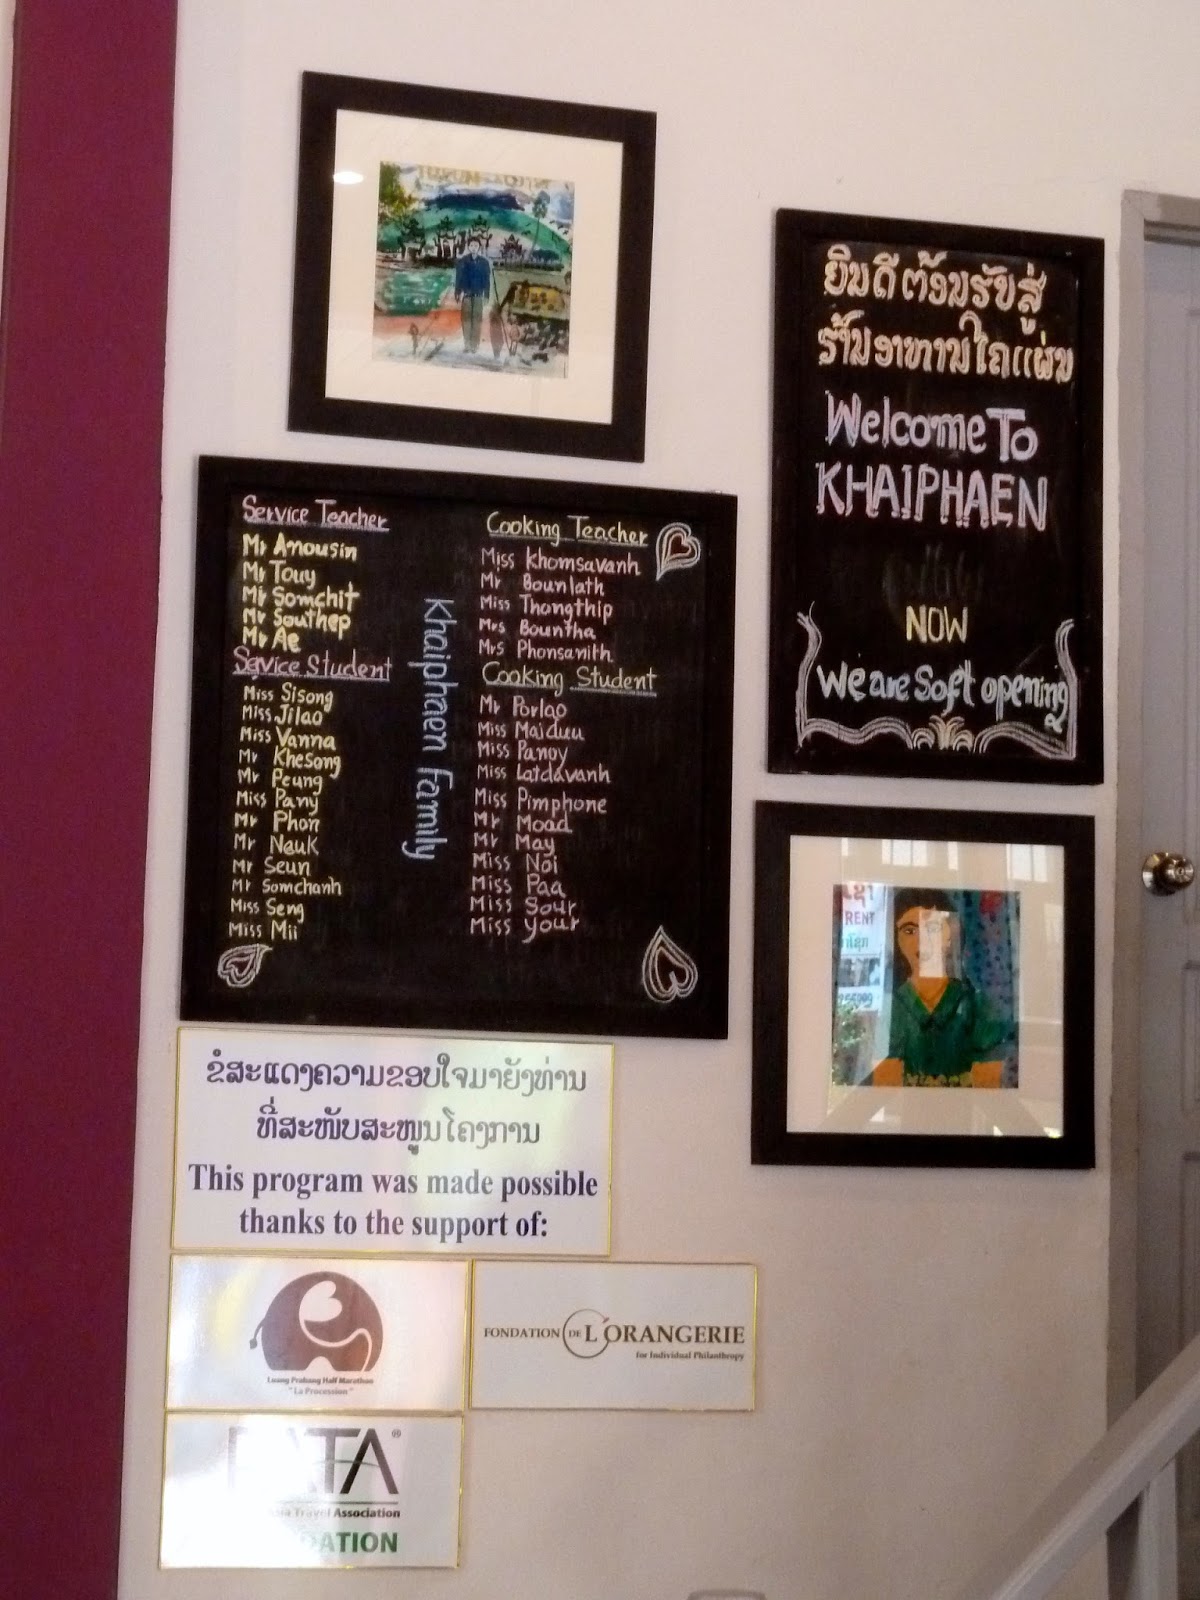 ຍິນດີຕ້ອນຮັບສູ່
ຮ້ານອາຫານໄຄແຜ່ນ
Welcome To
KHAIPHAEN
NOW
We are Soft opening
Service Teacher
Mr Anousin
Mr Touy
Mr Somchit
Mr Southep
Mr Ae
Service Student
Miss Sisong
Miss Jilao
Miss Vanna
Mr Khesong
Mr Peung
Miss Pany
Mr Phon
Mr Nauk
Mr Seun
Mr Somchanh
Miss Seng
Miss Mii
Khaiphaen Family
Cooking Teacher
Miss Khomsavanh
Mr Bounlath
Miss Thongthip
Mrs Bountha
Mrs Phonsanith
Cooking Student
Mr Porlao
Miss Maiduu
Miss Panoy
Miss Latdavanh
Miss Pimphone
Mr Moad
Mr May
Miss Noi
Miss Paa
Miss Sour
Miss your
RENT
ຂໍສະແດງຄວາມຂອບໃຈມາຍັງທ່ານ
ທີ່ສະໜັບສະໜູນໂຄງການ
This program was made possible
thanks to the support of:
Luang Prabang Half Marathon
"La Procession"
FONDATION DE L'ORANGERIE
for Individual Philanthropy
PATA®
Travel Association